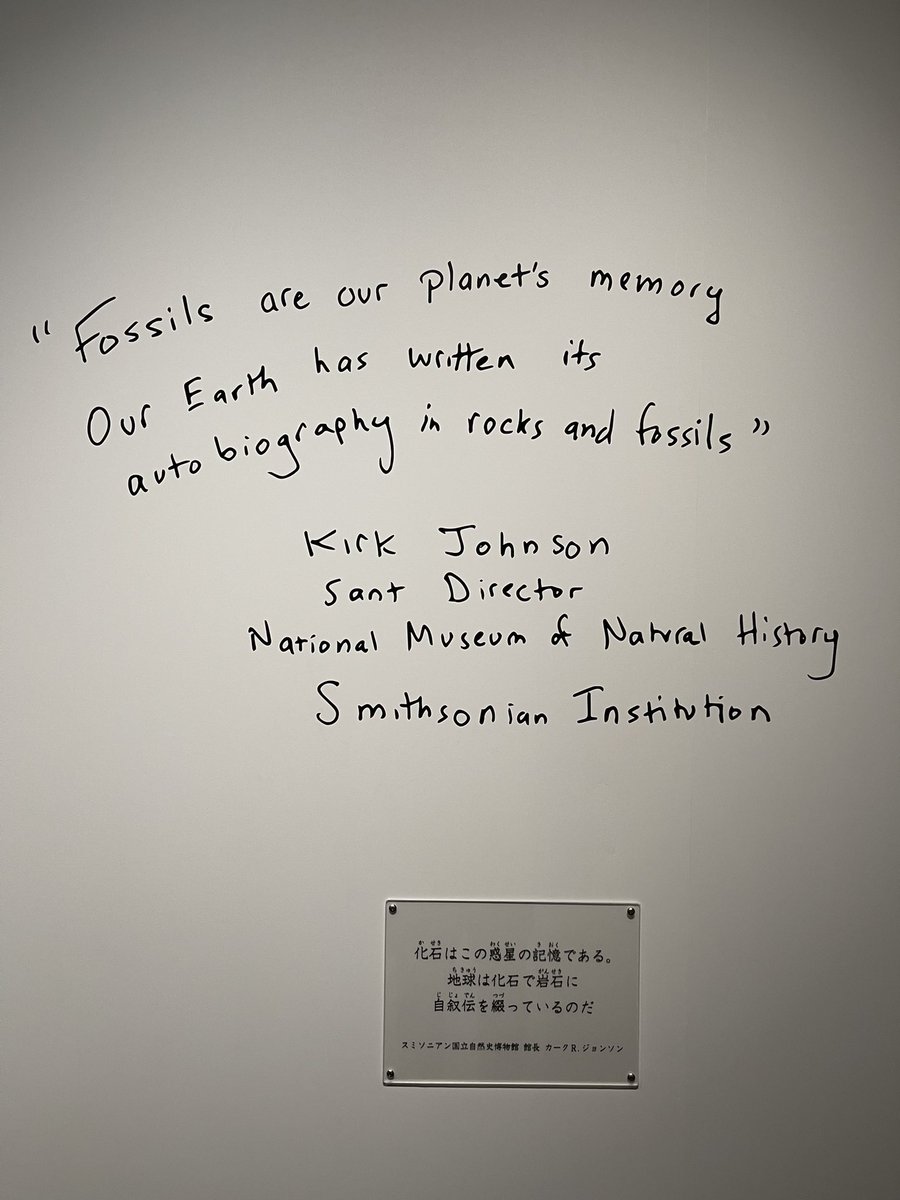 "Fossils are our planet's memory
Our Earth has written its
autobiography in rocks and fossils"
Kirk Johnson
Sant Director
National Museum of Natural History
Smithsonian Institution
化石はこの惑星の記憶である。
地球は化石で岩石に
自叙伝を綴っているのだ
スミソニアン国立自然史博物館 館長 カークR.ジョンソン